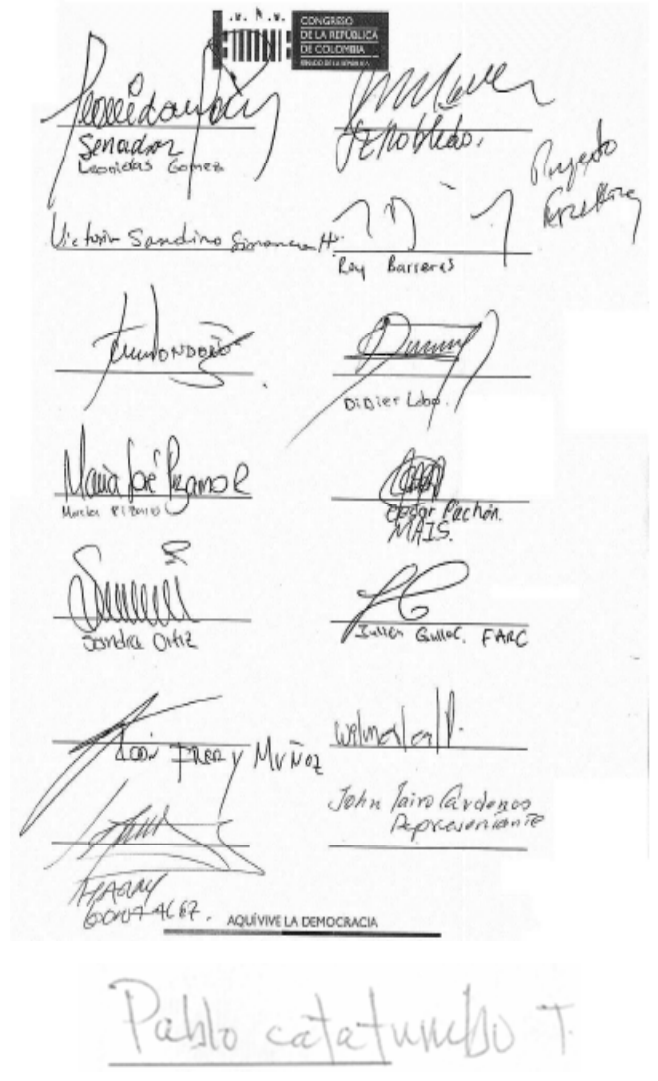 CONGRESO
DE LA REPÚBLICA
DE COLOMBIA
SENADO DE LA REPÚBLICA
Senador
Leonidas Gomez
JERobledo.
Proyecto
Victoria Sandino Simanca H.
Roy Barreras
Didier Lobo.
María José Pizarro R
María Pizarro
Cesar Pachón.
MAIS.
Sandra Ortiz
Julian Gallo C. FARC
León Fredy Muñoz
Wilmer Leal P.
John Jairo Cárdenas
Representante
HARRY
GONZALEZ.
AQUÍ VIVE LA DEMOCRACIA
Pablo catatumbo T.